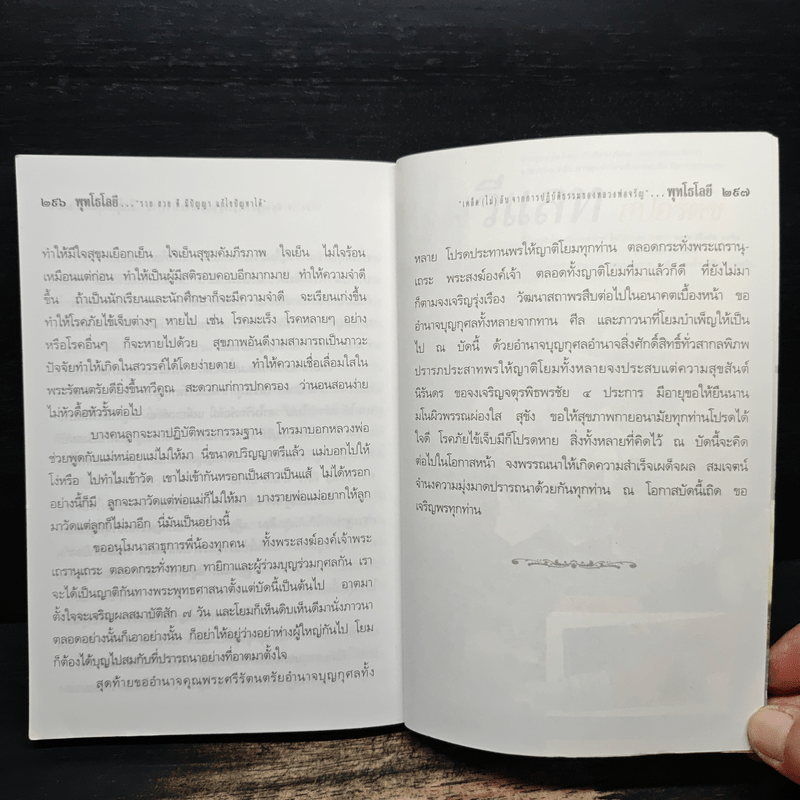 ๒๙๖ พุทโธโลยี ... "รวย สวย ดี มีปัญญา แก้ไขปัญหาได้"
ทำให้มีใจสุขุมเยือกเย็น ใจเย็นสุขุมคัมภีรภาพ ใจเย็น ไม่ใจร้อน
เหมือนแต่ก่อน ทำให้เป็นผู้มีสติรอบคอบอีกมากมาย ทำให้ความจำดี
ขึ้น ถ้าเป็นนักเรียนและนักศึกษาก็จะมีความจำดี จะเรียนเก่งขึ้น
ทำให้โรคภัยไข้เจ็บต่างๆ หายไป เช่น โรคมะเร็ง โรคหลายๆ อย่าง
หรือโรคอื่นๆ ก็จะหายไปด้วย สุขภาพอันดีงามสามารถเป็นภาวะ
ปัจจัยทำให้เกิดในสวรรค์ได้โดยง่ายดาย ทำให้ความเชื่อเลื่อมใสใน
พระรัตนตรัยดียิ่งขึ้นทวีคูณ สะดวกแก่การปกครอง ว่านอนสอนง่าย
ไม่หัวดื้อหัวรั้นต่อไป
บางคนลูกจะมาปฏิบัติพระกรรมฐาน โทรมาบอกหลวงพ่อ
ช่วยพูดกับแม่หน่อยแม่ไม่ให้มา นี่ขนาดปริญญาตรีแล้ว แม่บอกไปให้
โง่หรือ ไปทำไมเข้าวัด เขาไม่เข้ากันหรอกเป็นสาวเป็นแส้ ไม่ได้หรอก
อย่างนี้ก็มี ลูกจะมาวัดแต่พ่อแม่ก็ไม่ให้มา บางรายพ่อแม่อยากให้ลูก
มาวัดแต่ลูกก็ไม่มาอีก นี่มันเป็นอย่างนี้
ขออนุโมนาสาธุการพี่น้องทุกคน ทั้งพระสงฆ์องค์เจ้าพระ
เถรานุเถระ ตลอดกระทั่งทายก ทายิกาและผู้ร่วมบุญร่วมกุศลกัน เรา
จะได้เป็นญาติกันทางพระพุทธศาสนาตั้งแต่บัดนี้เป็นต้นไป อาตมา
ตั้งใจจะเจริญผลสมาบัติสัก ๗ วัน และโยมก็เห็นดิบเห็นดีมานั่งภาวนา
ตลอดอย่างนั้นก็เอาอย่างนั้น ก็อย่าให้อยู่ว่างอย่าห่างผู้ใหญ่กันไป โยม
ก็ต้องได้บุญไปสมกับที่ปรารถนาอย่างที่อาตมาตั้งใจ
สุดท้ายขออำนาจคุณพระศรีรัตนตรัยอำนาจบุญกุศลทั้ง
"เคล็ด (ไม่) ลับ จากการปฏิบัติธรรมของหลวงพ่อจรัญ" ... พุทโธโลยี ๒๙๗
หลาย โปรดประทานพรให้ญาติโยมทุกท่าน ตลอดกระทั่งพระเถรานุ-
เถระ พระสงฆ์องค์เจ้า ตลอดทั้งญาติโยมที่มาแล้วก็ดี ที่ยังไม่มา
ก็ตามจงเจริญรุ่งเรือง วัฒนาสถาพรสืบต่อไปในอนาคตเบื้องหน้า ขอ
อำนาจบุญกุศลทั้งหลายจากทาน ศีล และภาวนาที่โยมบำเพ็ญให้เป็น
ไป ณ บัดนี้ ด้วยอำนาจบุญกุศลอำนาจสิ่งศักดิ์สิทธิ์ทั่วสากลพิภพ
ปรารภประสาทพรให้ญาติโยมทั้งหลายจงประสบแต่ความสุขสันต์
นิรันดร ขอจงเจริญจตุรพิธพรชัย ๔ ประการ มีอายุขอให้ยืนนาน
มโนผิวพรรณผ่องใส สุขัง ขอให้สุขภาพกายอนามัยทุกท่านโปรดได้
ใจดี โรคภัยไข้เจ็บมีก็โปรดหาย สิ่งทั้งหลายที่คิดไว้ ณ บัดนี้จะคิด
ต่อไปในโอกาสหน้า จงพรรณนาให้เกิดความสำเร็จเผด็จผล สมเจตน์
จำนงความมุ่งมาดปรารถนาด้วยกันทุกท่าน ณ โอกาสบัดนี้เถิด ขอ
เจริญพรทุกท่าน